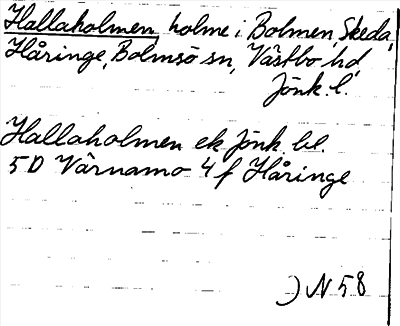 Hallaholmen, holme i Bolmen, Skeda,
Håringe, Bolmsö sn, Västbo hd,
Jönk. l.
Hallaholmen ek Jönk. bl.
5D Värnamo 4f Håringe
N 58